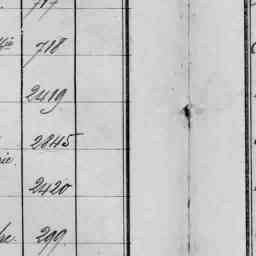 717
718
2419
2845
2420
299.